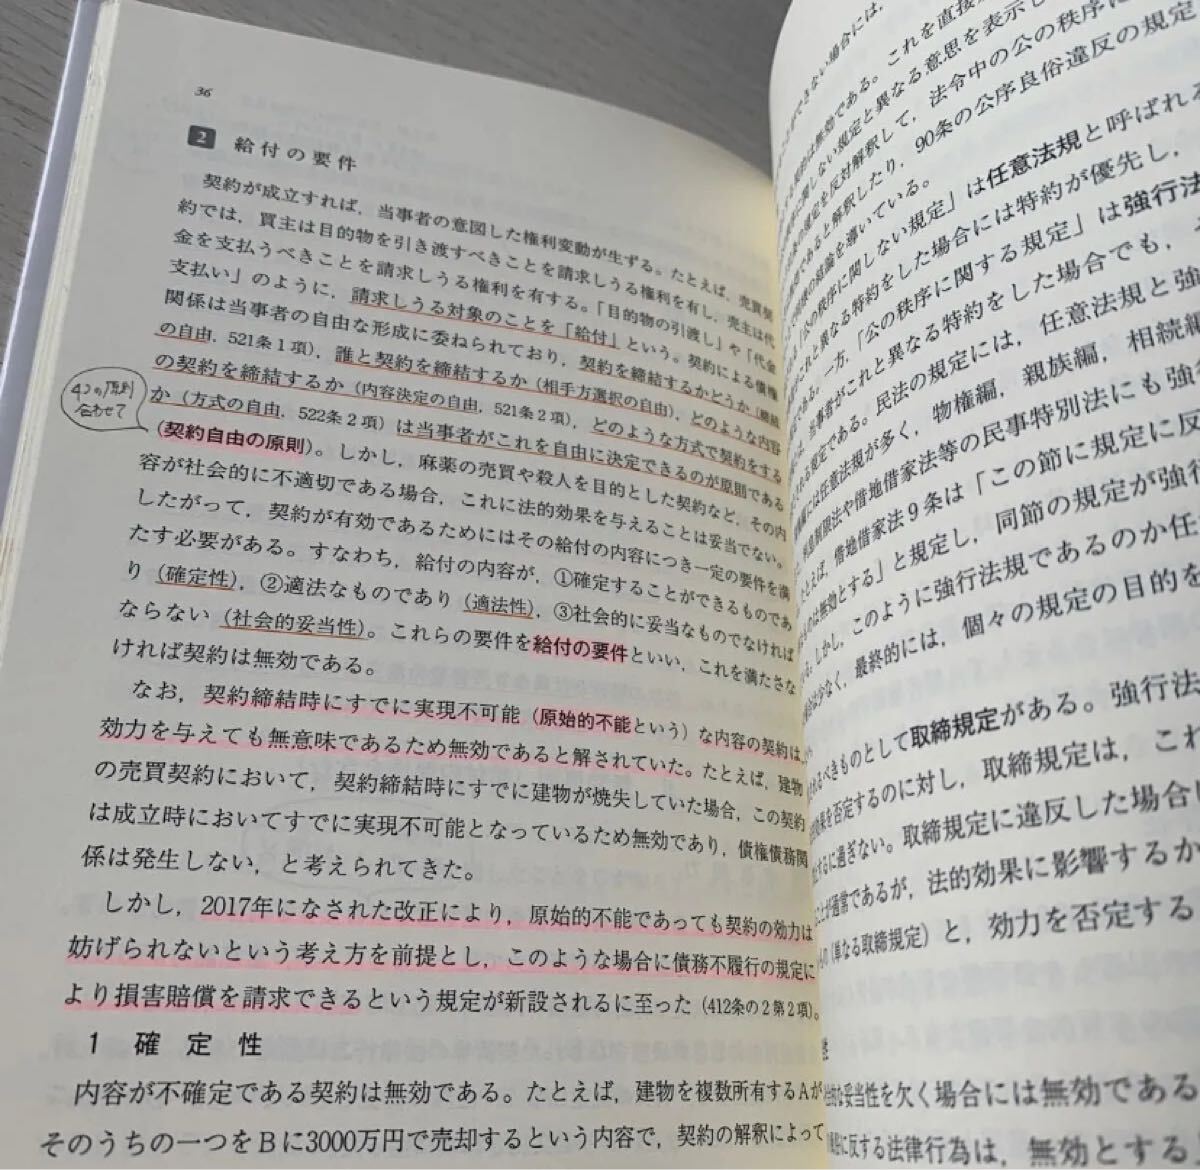 36
2 給付の要件
契約が成立すれば，当事者の意図した権利変動が生ずる。たとえば，売買契
約では，買主は目的物を引き渡すべきことを請求しうる権利を有し，売主は代
金を支払うべきことを請求しうる権利を有する。「目的物の引渡し」や「代金
支払い」のように，請求しうる対象のことを「給付」という。契約による債権
関係は当事者の自由な形成に委ねられており，契約を締結するかどうか（締結
の自由，521条1項），誰と契約を締結するか（相手方選択の自由），どのような内容
の契約を締結するか（内容決定の自由，521条2項），どのような方式で契約をする
か（方式の自由，522条2項）は当事者がこれを自由に決定できるのが原則である
4つの原則
合わせて
（契約自由の原則）。しかし，麻薬の売買や殺人を目的とした契約など，その内
容が社会的に不適切である場合，これに法的効果を与えることは妥当でない。
したがって，契約が有効であるためにはその給付の内容につき一定の要件を満
たす必要がある。すなわち，給付の内容が，①確定することができるものであ
り（確定性），②適法なものであり（適法性），③社会的に妥当なものでなければ
ならない（社会的妥当性）。これらの要件を給付の要件といい，これを満たさな
ければ契約は無効である。
なお，契約締結時にすでに実現不可能（原始的不能という）な内容の契約は，
効力を与えても無意味であるため無効であると解されていた。たとえば，建物
の売買契約において，契約締結時にすでに建物が焼失していた場合，この契約
は成立時においてすでに実現不可能となっているため無効であり，債権債務関
係は発生しない，と考えられてきた。
しかし，2017年になされた改正により，原始的不能であっても契約の効力は
妨げられないという考え方を前提とし，このような場合に債務不履行の規定に
より損害賠償を請求できるという規定が新設されるに至った（412条の2第2項）。
1 確定性
内容が不確定である契約は無効である。たとえば，建物を複数所有するAが
そのうちの一つをBに3000万円で売却するという内容で，契約の解釈によって
できない場合には，
契約は無効である。これを直接
に関しない規定と異なる意思を表示し
の規定を反対解釈して，法令中の公の秩序に
であると解釈したり，90条の公序良俗違反の規定
の結論を導いている。
「公の秩序に関しない規定」は任意法規と呼ばれる
これと異なる特約をした場合には特約が優先し，
である。一方，「公の秩序に関する規定」は強行法
，当事者がこれと異なる特約をした場合でも，
される規定である。民法の規定には，任意法規と強
には任意法規が多く，物権編，親族編，相続編
，利息制限法や借地借家法等の民事特別法にも強行
。たとえば，借地借家法9条は「この節に規定に反
ものは無効とする」と規定し，同節の規定が強行
る。しかし，このように強行法規であるのか任
は少なく，最終的には，個々の規定の目的を
れるべきものとして取締規定がある。強行法
効果を否定するのに対し，取締規定は，これ
するに過ぎない。取締規定に違反した場合
ことが通常であるが，法的効果に影響するか
もの（単なる取締規定）と，効力を否定する
的な妥当性を欠く場合には無効である
に反する法律行為は，無効とする